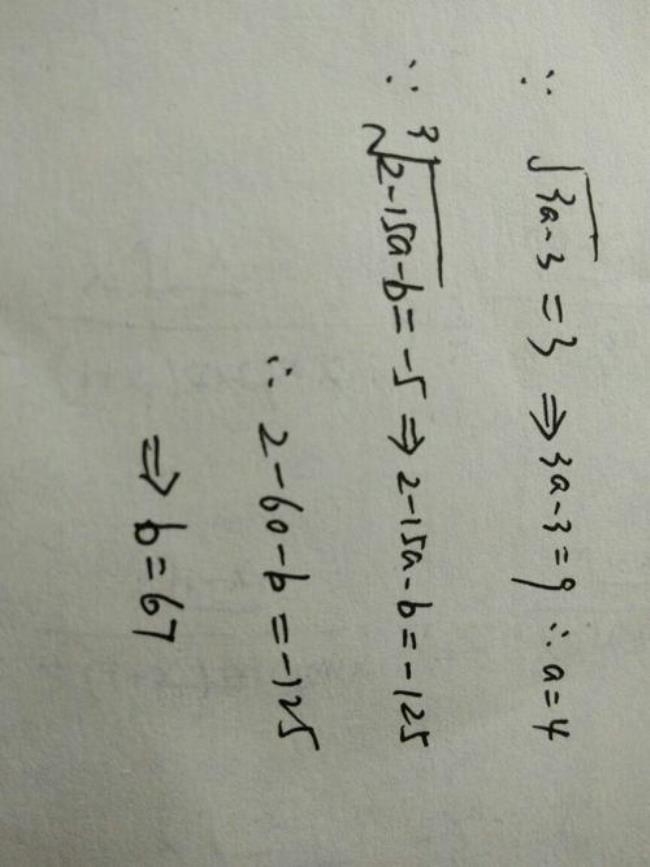 ∵ √(3a-3) = 3 ⇒ 3a-3=9 ∴ a=4
∵ ³√(2-15a-b) = -5 ⇒ 2-15a-b=-125
∴ 2-60-b=-125
⇒ b=67